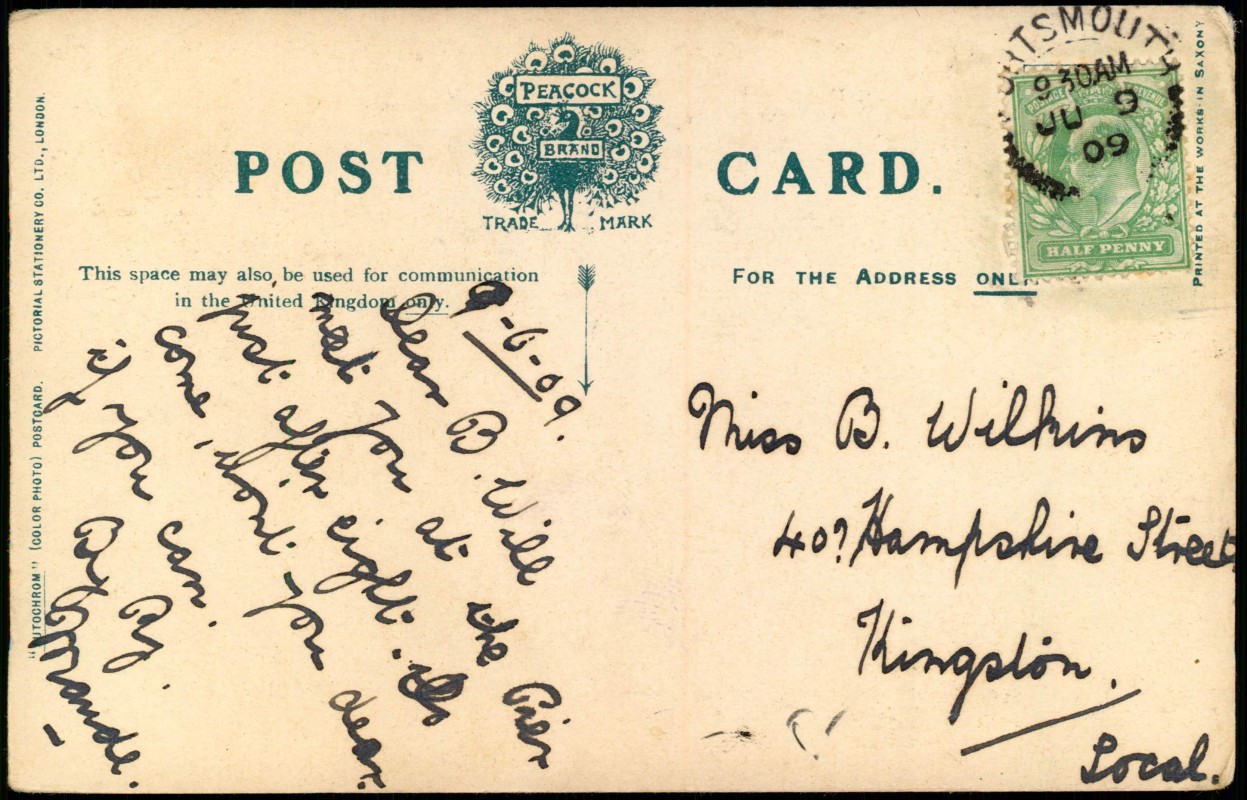 POST CARD.
PEACOCK
BRAND
TRADE MARK
This space may also be used for communication
in the United Kingdom only.
FOR THE ADDRESS ONLY
PORTSMOUTH
9 30AM
JU 9
09
HALF PENNY
PRINTED AT THE WORKS IN SAXONY
"AUTOCHROM" (COLOR PHOTO) POSTCARD. PICTORIAL STATIONERY CO. LTD., LONDON.
9-6-09.
Dear B. Will
meet you at the Pier
just after eight. Do
come, wont you dear
if you can.
By By.
Maude.
Miss B. Wilkins
40? Hampshire Street
Kingston.
Local.